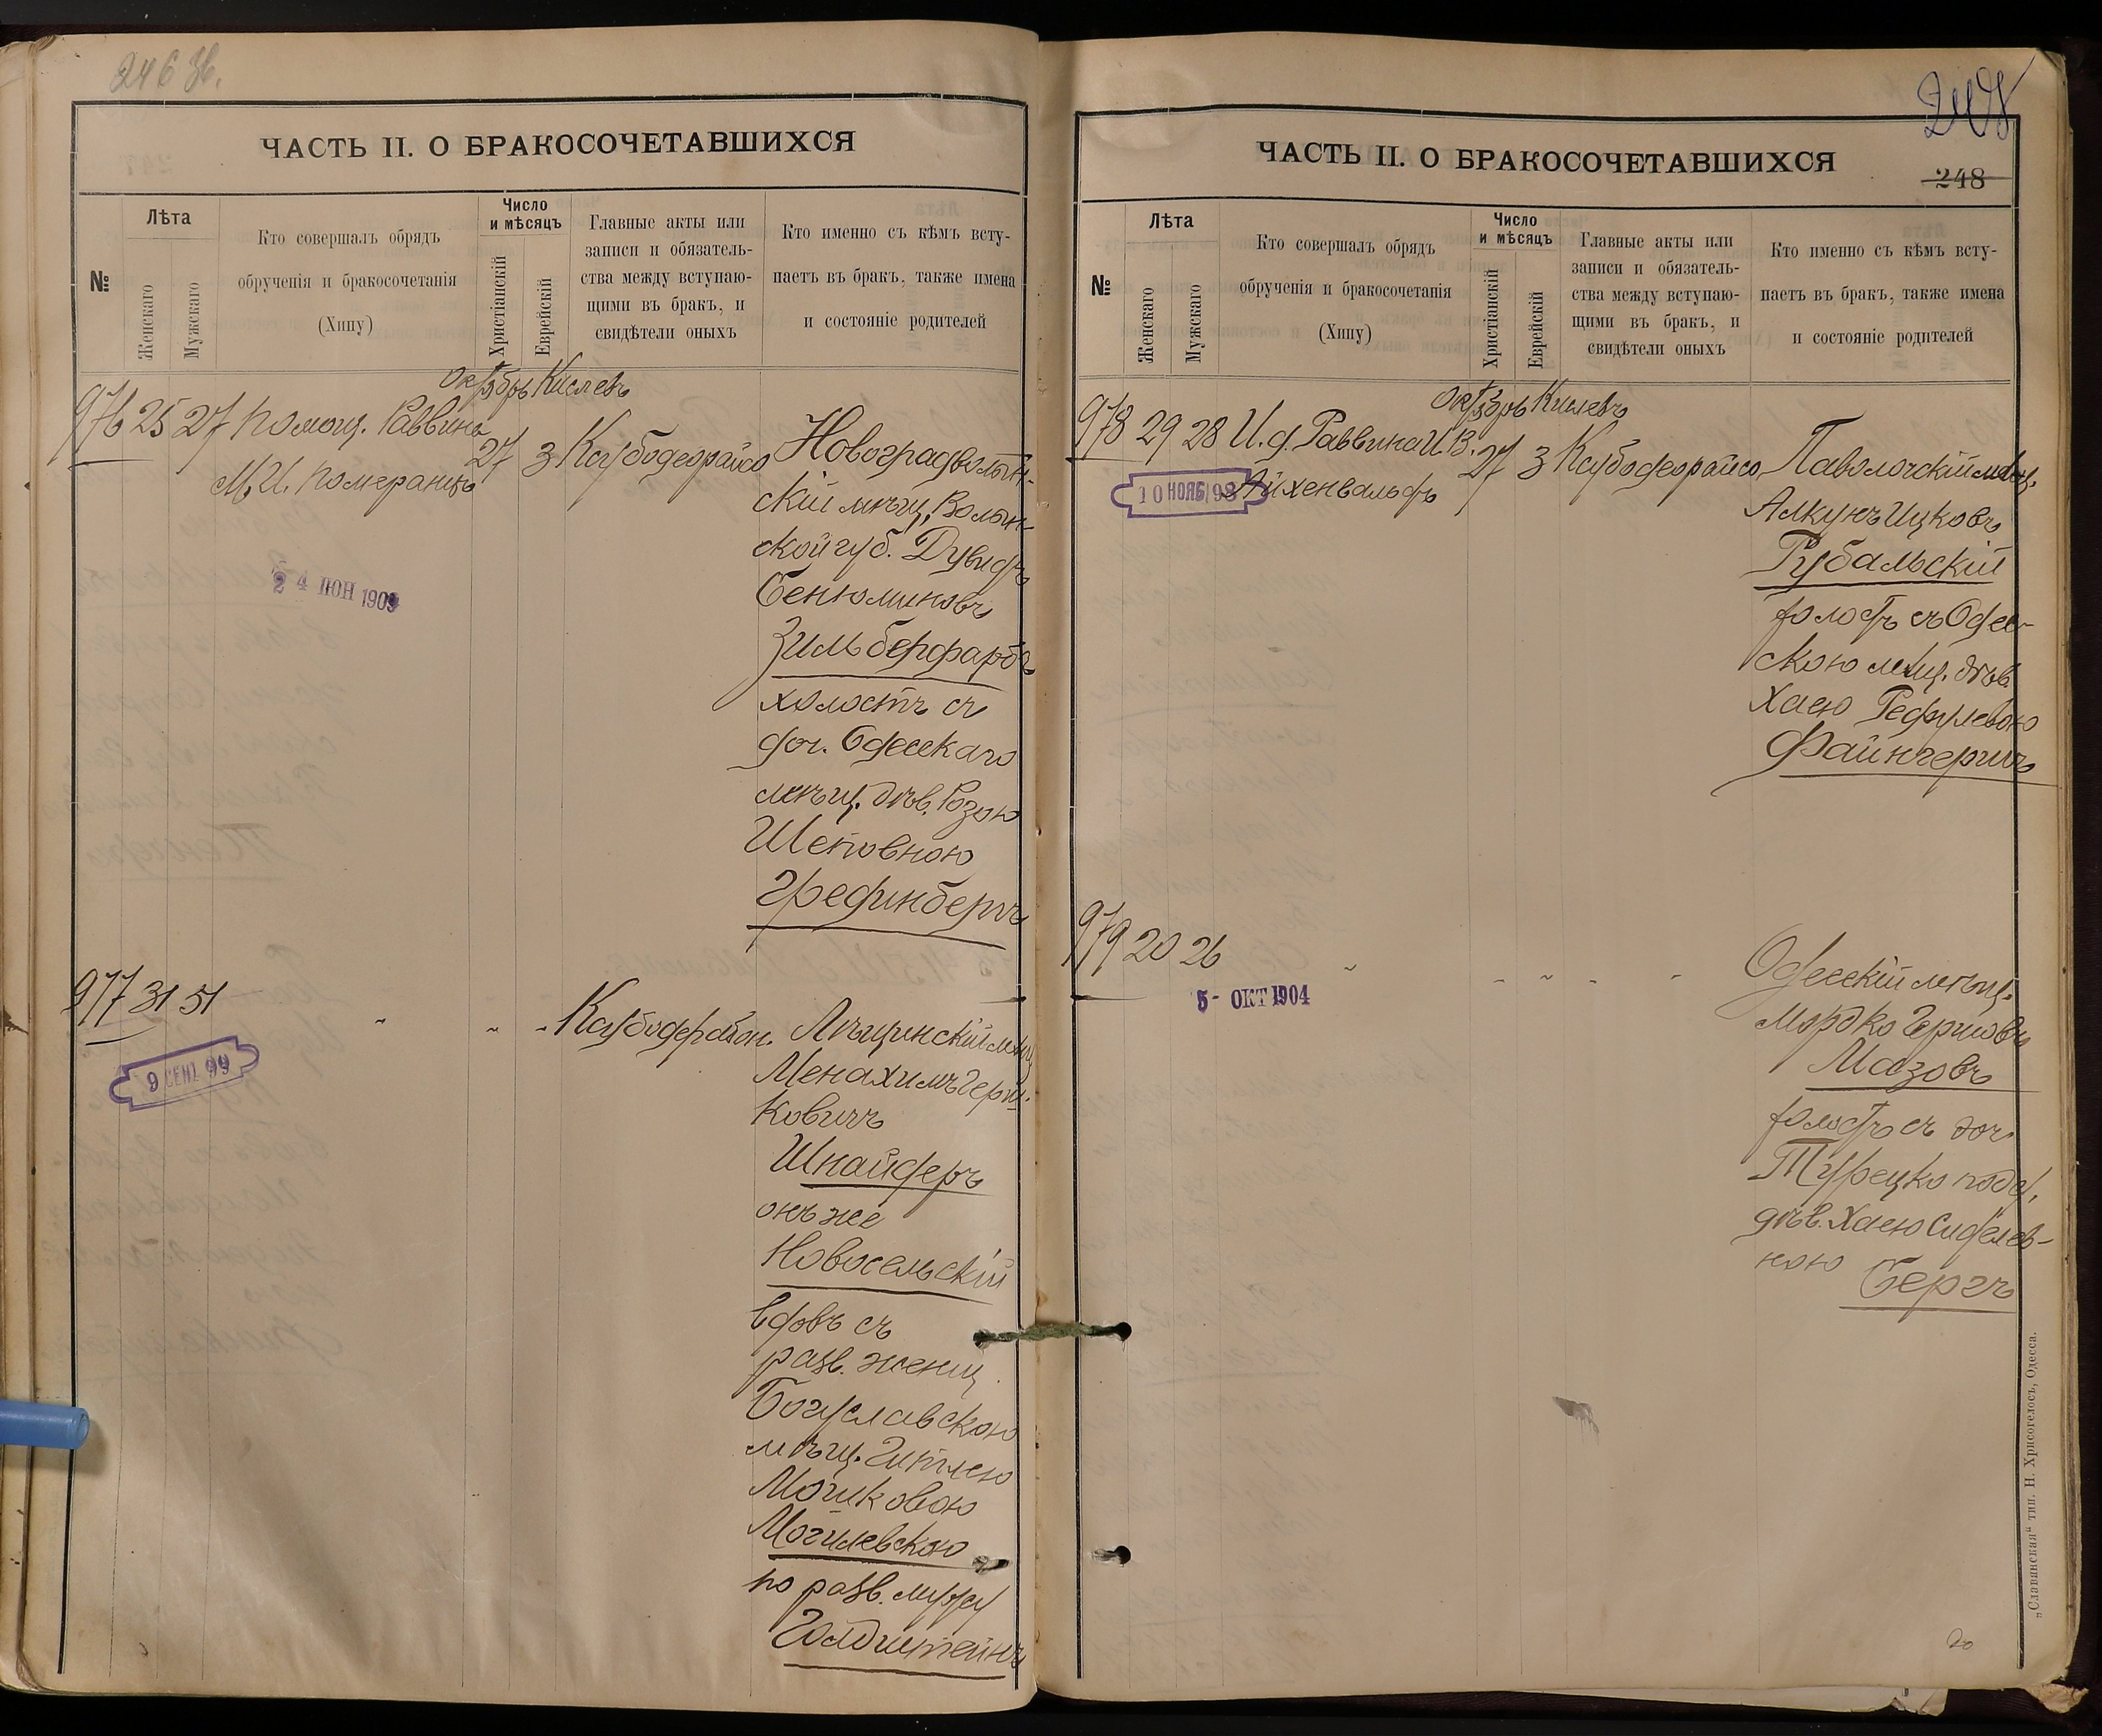 246 зв.
ЧАСТЬ II. О БРАКОСОЧЕТАВШИХСЯ
№
Лѣта
Женскаго
Мужскаго
Кто совершалъ обрядъ
обрученія и бракосочетанія
(Хипу)
Число
и мѣсяцъ
Христіанскій
Еврейскій
Главные акты или
записи и обязатель-
ства между вступаю-
щими въ бракъ, и
свидѣтели оныхъ
Кто именно съ кѣмъ всту-
паетъ въ бракъ, также имена
и состояніе родителей
Октябрь Кислевъ
976 25 27 Помощ. Раввина
М. И. Померанцъ
27 3 Каубодеорайсо
Новоградволын-
скій мѣщ. Волын-
ской губ. Дувидъ
Бенюминовъ
Зильберфарбъ
холостъ съ
доч. Одесскаго
мѣщ. дѣв. Розою
Шеповною
Грединбергъ
24 ІЮН 1909
977 31 51 " " " Каубодерабон.
9 СЕНТ 99
Лѣщинскій мѣщ.
Менахимъ Герш-
ковичъ
Шнайдеръ
онъ же
Новосельскій
вдовъ съ
разв. женщ.
Богуславскою
мѣщ. Гитлею
Мошковою
Могилевскою
по разв. мужу
Голдштейнъ
248
ЧАСТЬ II. О БРАКОСОЧЕТАВШИХСЯ
№
Лѣта
Женскаго
Мужскаго
Кто совершалъ обрядъ
обрученія и бракосочетанія
(Хипу)
Число
и мѣсяцъ
Христіанскій
Еврейскій
Главные акты или
записи и обязатель-
ства между вступаю-
щими въ бракъ, и
свидѣтели оныхъ
Кто именно съ кѣмъ всту-
паетъ въ бракъ, также имена
и состояніе родителей
Октябрь Кислевъ
978 29 28 И. д. Раввина И. В.
Айхенвальдъ
27 3 Каубодеорайсо
10 НОЯБ 98
Паволочскій мѣщ.
Алкунъ Ицковъ
Рубальскій
холостъ съ Одес-
скою мѣщ. дѣв.
Хаею Гедулевою
Файнгершъ
979 20 26 " " " " "
5- ОКТ 1904
Одесскій мѣщ.
Мордко Гершовъ
Мазовъ
холостъ съ доч.
Турецко подд.
дѣв. Хаею Сиделев-
ною Бергъ
„Славянская“ тип. Н. Хрисогелосъ, Одесса.
20